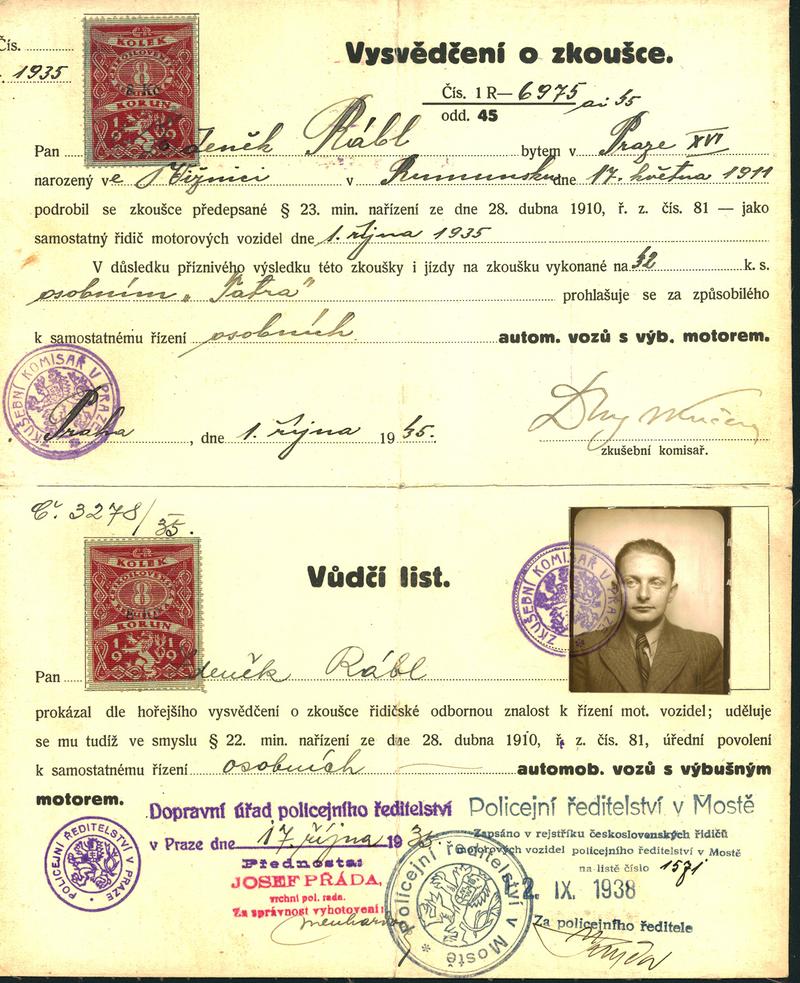 Čís.
1935
KOLEK
8
KORUN
1919
Vysvědčení o zkoušce.
Čís. 1 R— 6975 ai 35
odd. 45
Pan Zdeněk Rábl bytem v Praze XVI
narozený ve Vižnici v Rumunsku dne 17. května 1911
podrobil se zkoušce předepsané § 23. min. nařízení ze dne 28. dubna 1910, ř. z. čís. 81 — jako
samostatný řidič motorových vozidel dne 1. října 1935
V důsledku příznivého výsledku této zkoušky i jízdy na zkoušku vykonané na 52 k. s.
osobním „Tatra" prohlašuje se za způsobilého
k samostatnému řízení osobních autom. vozů s výb. motorem.
ZKUŠEBNÍ KOMISAŘ V PRAZE
Praha, dne 1. října 1935.
zkušební komisař.
Č. 3278/35.
KOLEK
8
KORUN
1919
Vůdčí list.
ZKUŠEBNÍ KOMISAŘ V PRAZE
Pan Zdeněk Rábl
prokázal dle hořejšího vysvědčení o zkoušce řidičské odbornou znalost k řízení mot. vozidel; uděluje
se mu tudíž ve smyslu § 22. min. nařízení ze dne 28. dubna 1910, ř. z. čís. 81, úřední povolení
k samostatnému řízení osobních automob. vozů s výbušným
motorem.
Dopravní úřad policejního ředitelství
v Praze dne 17. října 1935
Přednosta:
JOSEF PŘÁDA,
vrchní pol. rada.
Za správnost vyhotovení:
POLICEJNÍ ŘEDITELSTVÍ V PRAZE
Policejní ředitelství v Mostě
Zapsáno v rejstříku československých řidičů
motorových vozidel policejního ředitelství v Mostě
na listě číslo 1571
2. IX. 1938
Za policejního ředitele
policejní ředitelství v Mostě